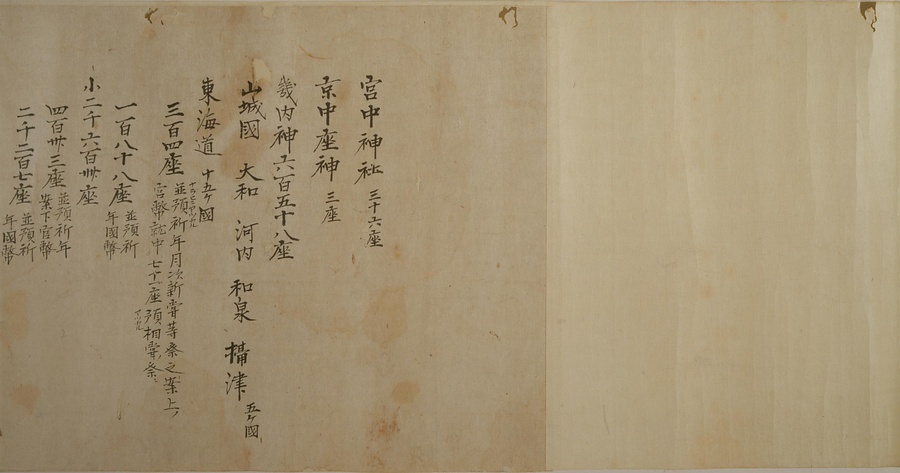 宮中神社 三十六座
京中座神 三座
畿内神六百五十八座
山城國 大和 河内 和泉 攝津 五ケ國
東海道 十五ケ國
三百四座 並預祈年月次新嘗等祭之案上
官幣就中七十一座預相嘗祭
一百八十八座 並預祈
年國幣
小二千六百卅座
四百卅三座 並預祈年
案下官幣
二千二百七座 並預祈
年國幣